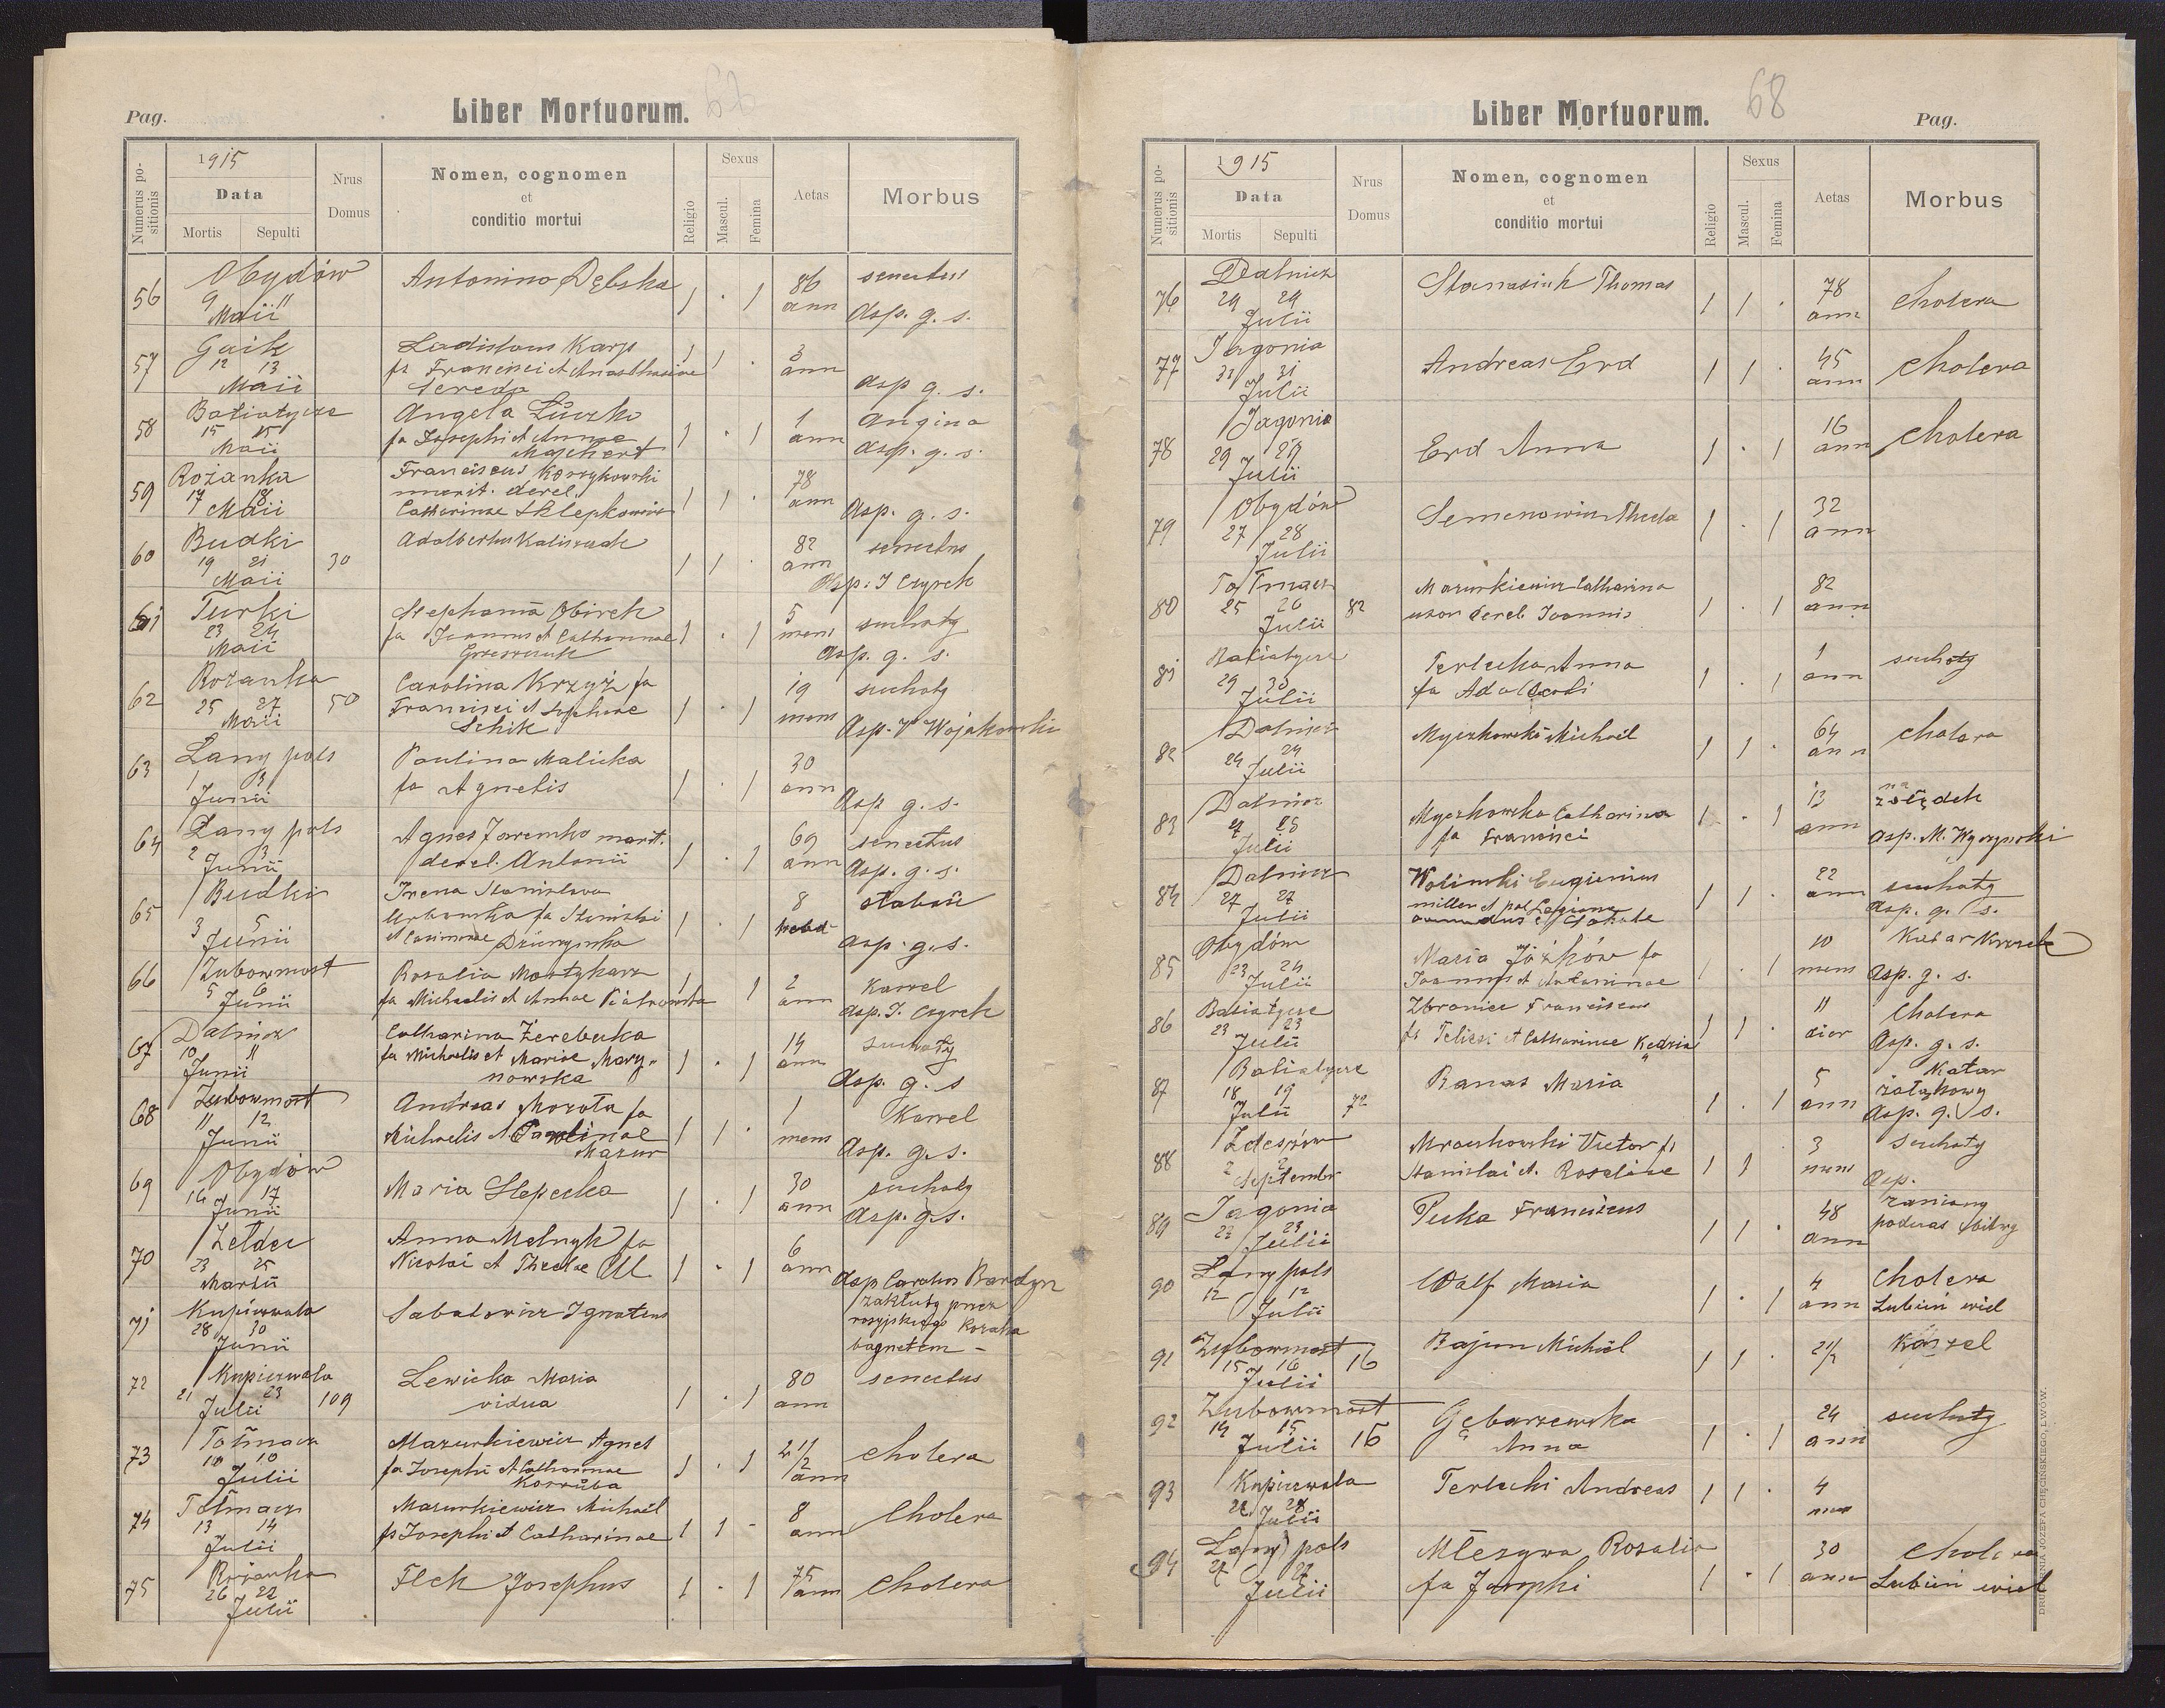 67
Pag.
Liber Mortuorum.
Numerus positionis
1915
Data
Mortis
Sepulti
Nrus Domus
Nomen, cognomen
et
conditio mortui
Religio
Sexus
Mascul.
Femina
Aetas
Morbus
56 Obydów Antonina Dębska 1 . 1 86 senectus
9 11 Maii ann Asp. g. s.
57 Gaik Ladislaus Karp 1 1 . 3
12 13 fs Francisci et Anasthasiae ann
Maii Sereda asp g. s.
58 Batiatycze Angela Łuczko 1 angina
15 15 fa Josephi et Annae 1 . 1 ann asp. g. s.
Maii Majchert
59 Rożanka Franciscus Korzykowski 78
17 18 marit. derel. 1 1 . ann
Maii Catharinae Sklepkowicz Asp. g. s.
60 Budki Adalbertus 82 senectus
19 21 30 1 1 . ann
Maii Asp. J Czyrek
61 Turki Stephania Obirek 5 suchoty
23 24 fa Joannis et Catharinae 1 . 1 mens
Maii Grzeszczuk Asp. g. s.
62 Rożanka Carolina Krzyż fa 19 suchoty
25 27 50 Francisci et Sophiae 1 . 1 mens
Maii Schik Asp. V Wojakowski
63 Łany pols Paulina Malicka 30
1 3 fa Agnetis 1 . 1 ann
Junii Asp g. s.
64 Łany pols Agnes Jaremko marit. 69 senectus
2 3 derel. Antonii 1 . 1 ann Asp. g. s.
Junii
65 Budki Irena Stanislava 8
3 5 Urbanska fa Stanislai 1 . 1 hebd
Junii et Casimirae asp. g. s.
66 Żubowmost Rosalia Martykarz 1 1 2 Karrel
5 6 fa Michaelis et Annae ann Asp. J. Czyrek
Junii
67 Dalnicz Catharina Żerebecka 14 suchoty
10 11 fa Michaelis et Mariae Mary- 1 . 1 ann
Junii nowska Asp. g. s
68 Żubowmost Andreas Mozola fa 1 Karrel
11 12 Michaelis et Paulinae 1 1 . mens
Junii Mazur Asp. g. s.
69 Obydów Maria Slepecka 30 suchoty
16 17 1 . 1 ann Asp. g. s.
Junii
70 Żeldec Anna Melnyk fa 6
23 25 Nicolai et Theclae 1 . 1 ann
Martii Asp Carolus Bardyn
71 Kupiczwola Sabatowicz Ignatius zakłuty przez
28 30 rosyjskiego kozaka
Junii bagnetem -
72 Kupiczwola Lewicka Maria 80 senectus
21 23 109 vidua 1 . 1 ann
Julii
73 Tołmacz Mazurkiewicz Agnes 2 1/2 cholera
10 10 fa Josephi et Catharinae 1 . 1 ann
Julii
74 Tołmacz Mazurkiewicz Michaël 8 Cholera
13 14 fs Josephi et Catharinae 1 1 - ann
Julii
75 Rożanka Flek Josephus 1 . 1 75 cholera
26 22 ann
Julii
68
Liber Mortuorum.
Pag.
Numerus positionis
1915
Data
Mortis
Sepulti
Nrus Domus
Nomen, cognomen
et
conditio mortui
Religio
Sexus
Mascul.
Femina
Aetas
Morbus
76 Dalnicz Stanasiuk Thomas 78
24 24 1 1 . ann cholera
Julii
77 Jagonia Andreas Erd 1 1 . 45 cholera
31 31 ann
Julii
78 Jagonia Erd Anna 16 cholera
29 29 1 . 1 ann
Julii
79 Obydów Semenowicz Thecla 32
27 28 1 . 1 ann
Julii
80 Tołmacz Mazurkiewicz Catharina 82
25 26 82 uxor derel Joannis 1 . 1 ann
Julii
81 Batiatycze Terlecka Anna 1 suchoty
29 30 fa 1 . 1 ann
Julii
82 Dalnicz Myczkowski Michaël 64 cholera
24 24 1 1 . ann
Julii
83 Dalnicz Myczkowska Catharina 13 na żołądek
27 28 fa Francisci 1 . 1 ann
Julii asp. M. Wyczyński
84 Dalnicz Wolinski Eugenius 22 suchoty
27 27 miller et pol Legione 1 1 . ann asp. g. s.
Julii
85 Obydów Maria Józków fa 10 Katar Kiszek
23 24 Joannis et Antoninae 1 . 1 mens Asp. g. s.
Julii
86 Batiatycze Zbronice Franciscus 11 Cholera
23 23 fs Felicis et Catharinae Kędzia 1 1 . dier Asp. g. s.
Julii
87 Batiatycze Banas Maria 5 Katar
18 19 1 . 1 ann żołądkowy
Julii 72 Asp. g. s.
88 Mroczkowski Victor fs 3 suchoty
2 2 Stanislai et Rosaliae 1 1 mens
Septembr Asp.
89 Jagonia Pucka Franciscus 48 raniony
22 23 1 1 . ann podczas bitwy
Julii
90 Łany pols Wolf Maria 4 Cholera
12 12 1 . 1 ann Lubień wiel
Julii
91 Żubowmost Bajun Michaël 2 1/2 Karrel
15 16 16 1 1 .
Julii
92 Żubowmost Gębarzewska 24 suchoty
14 15 16 Anna 1 . 1 ann
Julii
93 Kupiczwola Terlecki Andreas 1 1 . 4
Julii
94 Łany pols Młezywa Rosalia 30 Cholera
27 27 fa Josephi 1 . 1 ann Lubień wiel
Julii
DRUKARNIA JÓZEFA CHĘCIŃSKIEGO, LWÓW.